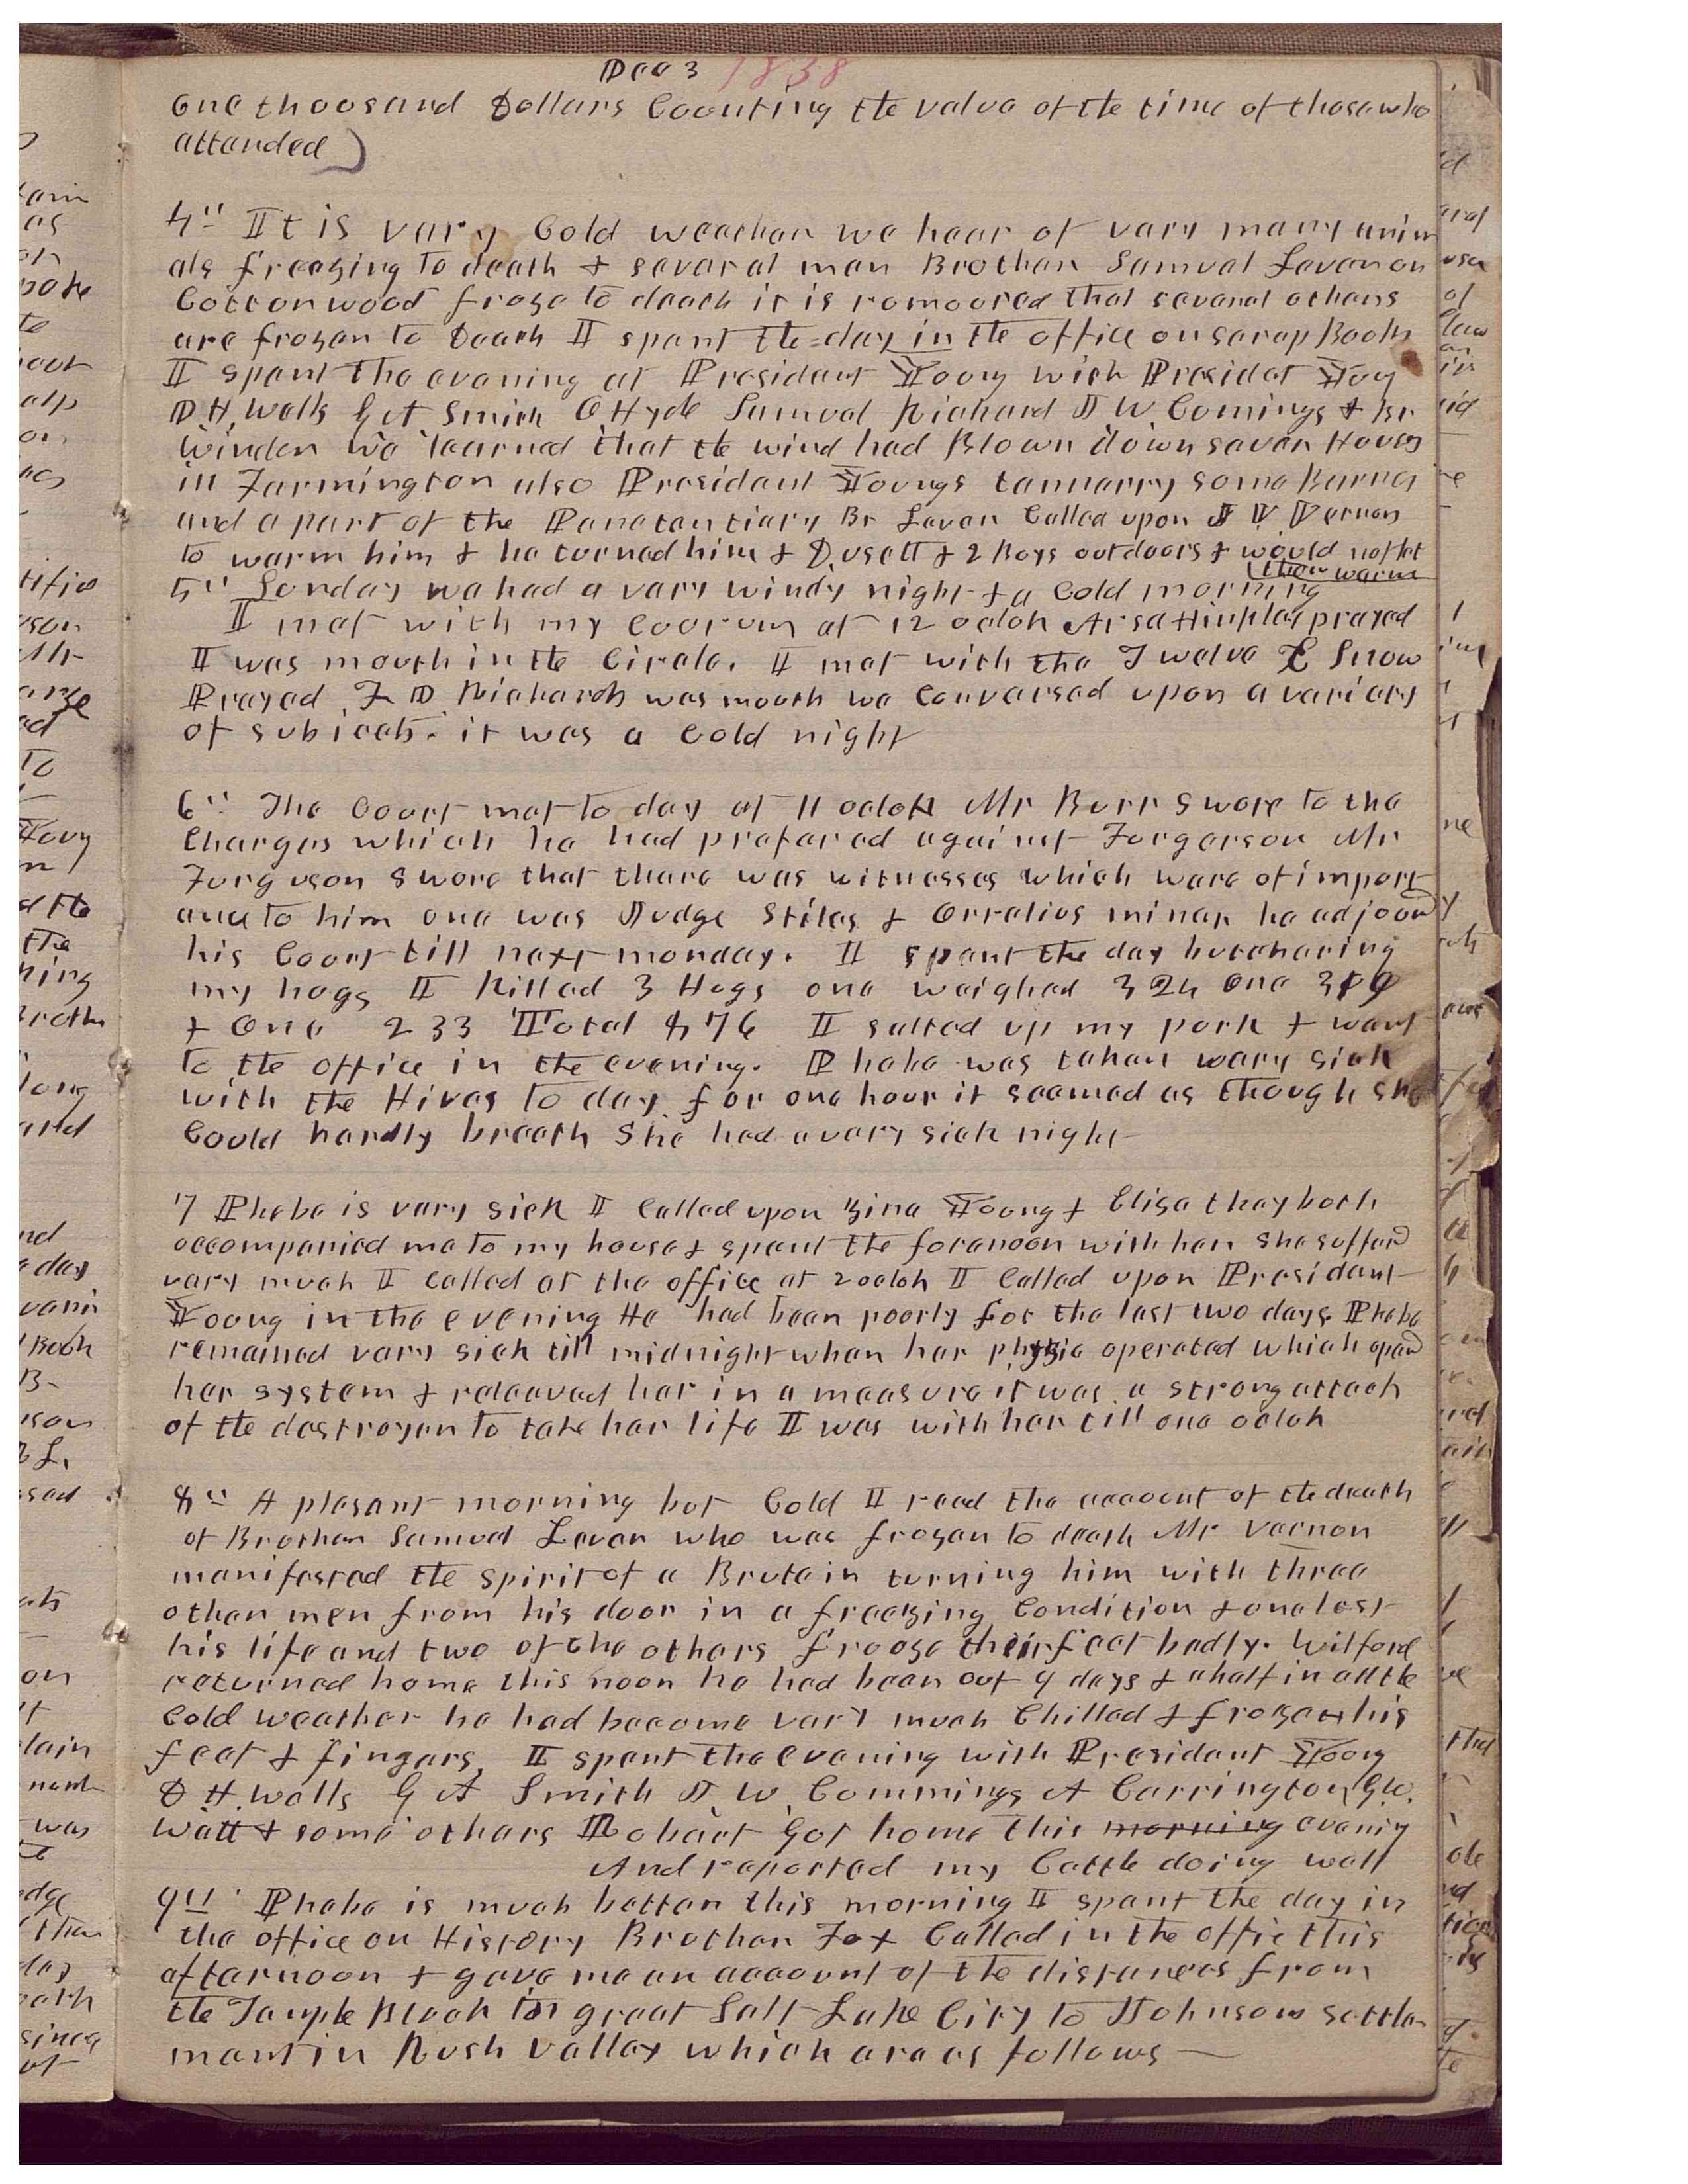 Dec 3 1858
one thousand Dollars Counting the value of the time of those who
attended)
4" It is very Cold weather we hear of very many anim
als freezing to death & several men Brother Samuel Leaver on
Cottonwood froze to death it is romoored that several others
are frozen to Death I spent the day in the office on scrap Books
I spent the evening at President Young with Presidet Young
D H. Wells G A Smith O Hyde Samuel Richard J W Comings & Br
Winder We learned that the wind had Blown down seven Houses
in Farmington also President Youngs tannarry some Barnes
and a part of the Penetentiary Br Leaver Called upon J V Vernon
to warm him & he turned him & Dusett & 2 Boys outdoors & would not let
them warm
5" Sunday we had a very windy night & a Cold morning
I met with my Coorum at 12 oclok Arsa Hinkley prayed
I was mouth in the Circle. I met with the Twelve E Snow
Prayed F D Richards was mouth we Conversed upon a variety
of subjects. it was a Cold night
6" The Court met to day at 11 oclok Mr Burr swore to the
Charges which he had prefared against Forgerson Mr
Furguson swore that there was witnesses which were of import
ance to him one was Judge Stiles & Orralios minar he adjoond
his Court till next monday. I spent the day butchering
my hogs I Killed 3 Hogs one weighed 324 one 319
& One 233 Total 876 I salted up my pork & went
to the office in the evening. Phebe was taken very sick
with the Hives to day. for one hour it seemed as though she
Could hardly breath She had a very sick night
7 Phebe is very sick I Called upon Zina Young & Eliza they both
accompanied me to my house & spent the forenoon with her she sufferd
very much I called at the office at 2 oclok I Called upon President
Young in the evening He had been poorly for the last two days. Phebe
remained very sick till midnight when her physic operated which opend
her system & releaved her in a measure it was a strong attack
of the destroyer to take her life I was with her till one oclok
8" A plesant morning but Cold I read the account of the death
of Brother Samuel Leaver who was frozen to death Mr Vernon
manifested the spirit of a Brute in turning him with three
other men from his door in a freezing Condition & one lost
his life and two of the others frooze their feet badly. Wilford
returned home this noon he had been out 9 days & a half in all the
Cold weather he had become very much Chilled & froze his
feet & fingers, I spent the evening with President Young
D H. Wells G A Smith J W Commings A Carrington G W.
Watt & some others Robert Got home this morning evening
And reported my Cattle doing well
9" Phebe is much better this morning I spent the day in
the office on History Brother Fox Called in the offic this
afternoon & gave me an account of the distances from
the Temple Block in great Salt Lake City to Johnsons settle
ment in Rush Valley which are as follows —